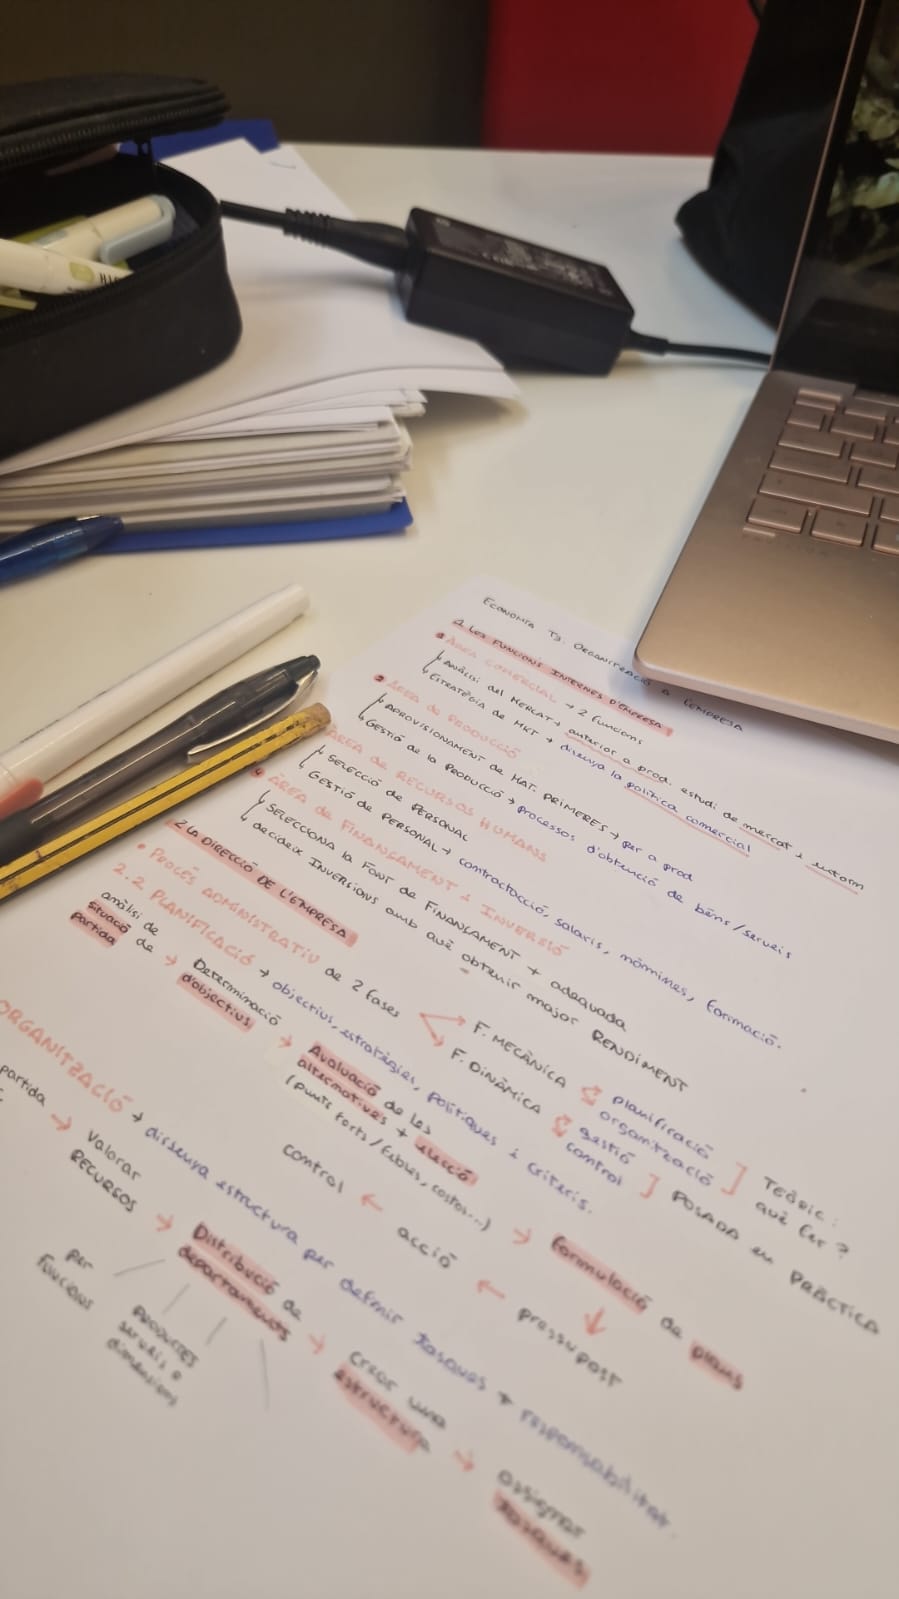 ECONOMIA T3. ORGANITZACIÓ L'EMPRESA
LES FUNCIONS INTERNES D'EMPRESA
ÀREA COMERCIAL → 2 funcions
ANÀLISI del MERCAT → anterior a prod. estudi de mercat i entorn
ESTRATÈGIA de MKT → dissenya la política comercial
ÀREA de PRODUCCIÓ
APROVISIONAMENT de MAT. PRIMERES → per a prod
GESTIÓ de la PRODUCCIÓ → processos d'obtenció de béns/serveis
ÀREA de RECURSOS HUMANS
SELECCIÓ de PERSONAL
GESTIÓ de PERSONAL → contractació, salaris, nòmines, formació.
ÀREA de FINANÇAMENT i INVERSIÓ
SELECCIONA la FONT de FINANÇAMENT + adequada
decideix INVERSIONS amb què obtenir major RENDIMENT
2 La DIRECCIÓ DE L'EMPRESA
• PROCÉS ADMINISTRATIU de 2 fases
F. MECÀNICA planificació organització ] TEÒRIC: què fer?
F. DINÀMICA gestió control ] POSADA en PRÀCTICA
2.2 PLANIFICACIÓ → objectius, estratègies, polítiques i criteris.
anàlisi de situació de partida → Determinació d'objectius → Avaluació de les alternatives + elecció
(punts forts/febles, costos...) → formulació de plans
↓
pressupost
← acció
← control
ORGANITZACIÓ → dissenya estructura per definir tasques + responsabilitat.
partida → Valorar RECURSOS → Distribució de departaments → crear una estructura → assignar tasques
per funcions
PRODUCTES serveis o